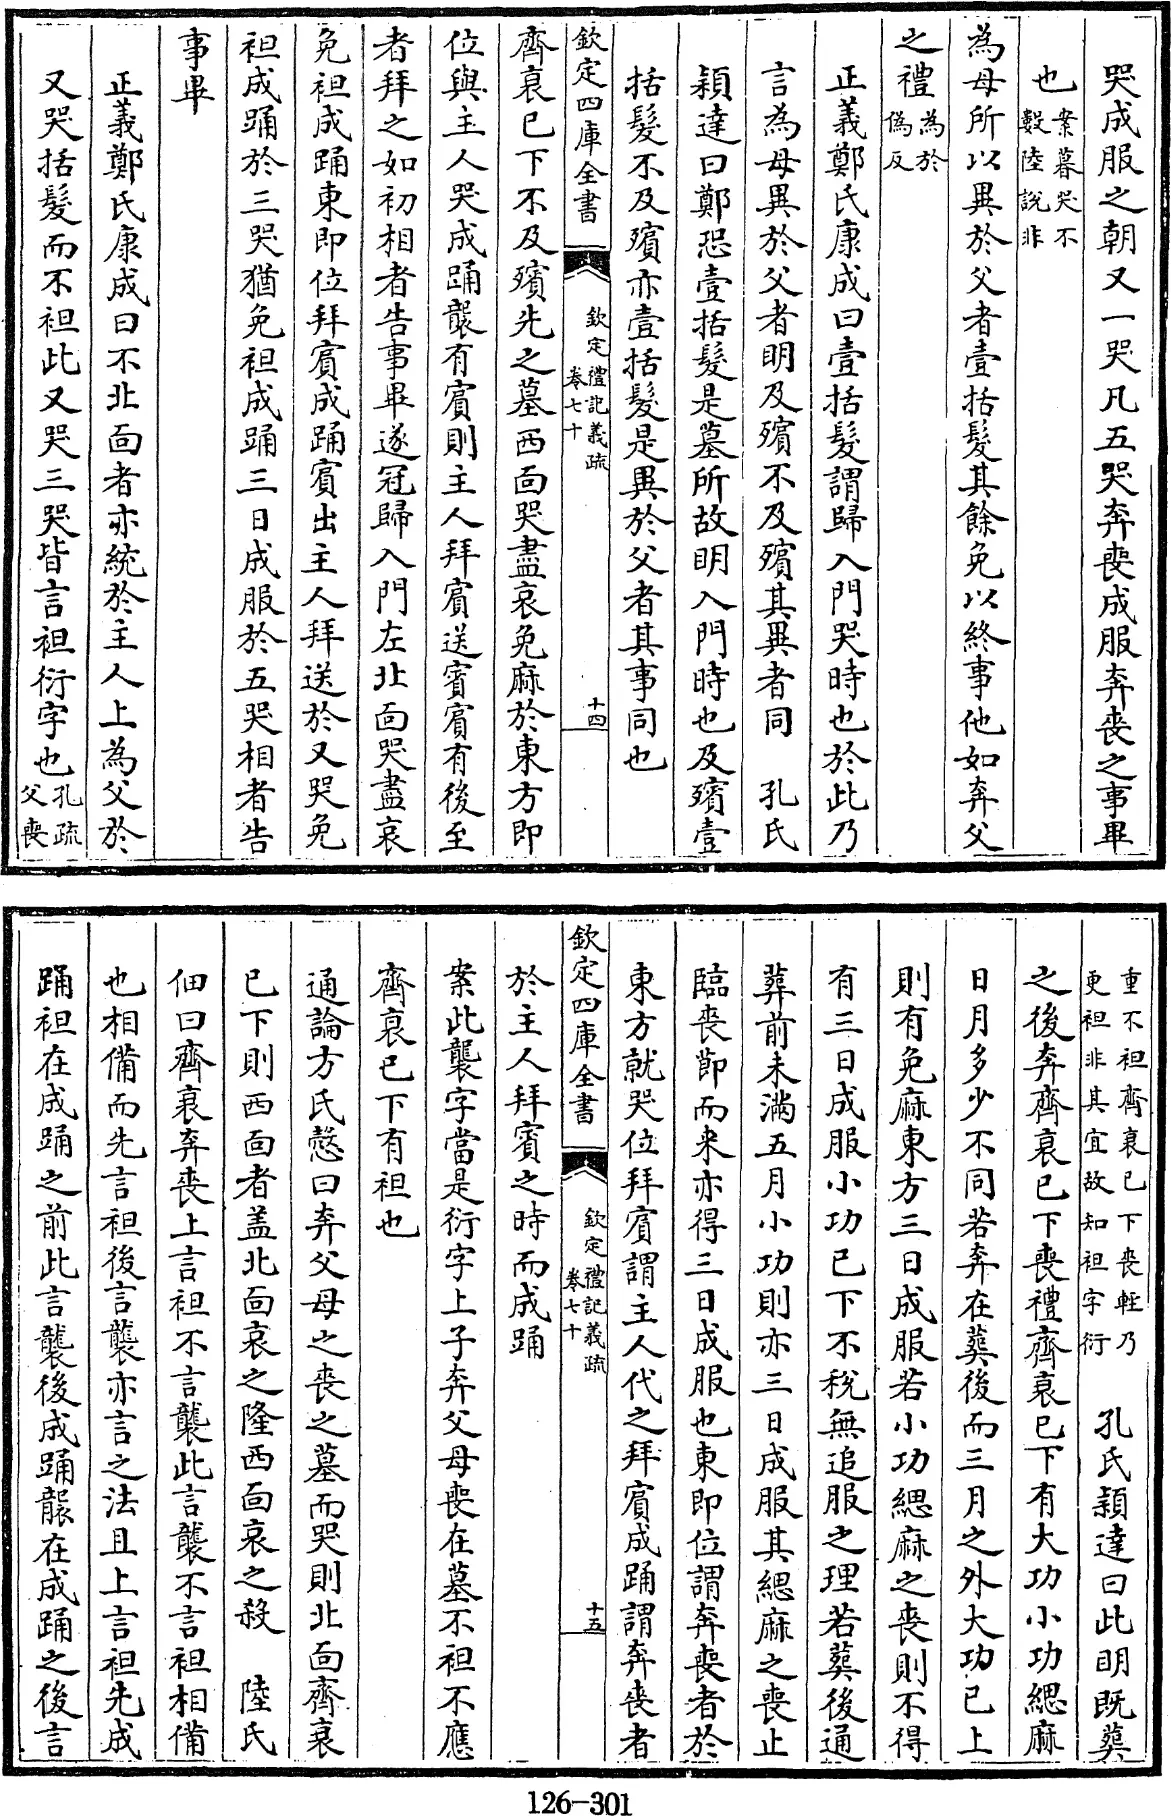 哭成服之朝又一哭凡五哭奔喪成服奔喪之事畢
也案暮哭不數陸說非
為母所以異於父者壹括髮其餘免以終事他如奔父
之禮為於偽反
正義鄭氏康成曰壹括髮謂歸入門哭時也於此乃
言為母異於父者明及殯不及殯其異者同　孔氏
穎達曰鄭恐壹括髮是墓所故明入門時也及殯壹
括髮不及殯亦壹括髮是異於父者其事同也
欽定四庫全書　欽定禮記義疏卷七十　十四
齊衰已下不及殯先之墓西面哭盡哀免麻於東方即
位與主人哭成踊襲有賓則主人拜賓送賓賓有後至
者拜之如初相者告事畢遂冠歸入門左北面哭盡哀
免袒成踊東即位拜賓成踊賓出主人拜送於又哭免
袒成踊於三哭猶免袒成踊三日成服於五哭相者告
事畢
正義鄭氏康成曰不北面者亦統於主人上為父於
又哭括髮而不袒此又哭三哭皆言袒衍字也孔疏父喪
重不袒齊衰已下喪輕乃更袒非其宜故知袒字衍　孔氏穎達曰此明既葬
之後奔齊衰已下喪禮齊衰已下有大功小功緦麻
日月多少不同若奔在葬後而三月之外大功已上
則有免麻東方三日成服若小功緦麻之喪則不得
有三日成服小功已下不稅無追服之理若葬後通
葬前未滿五月小功則亦三日成服其緦麻之喪止
臨喪節而來亦得三日成服也東即位謂奔喪者於
東方就哭位拜賓謂主人代之拜賓成踊謂奔喪者
欽定四庫全書　欽定禮記義疏卷七十　十五
於主人拜賓之時而成踊
案此襲字當是衍字上子奔父母喪在墓不袒不應
齊衰已下有袒也
通論方氏慤曰奔父母之喪之墓而哭則北面齊衰
已下則西面者蓋北面哀之隆西面哀之殺　陸氏
佃曰齊衰奔喪上言袒不言襲此言襲不言袒相備
也相備而先言袒後言襲亦言之法且上言袒先成
踊袒在成踊之前此言襲後成踊襲在成踊之後言
126-301